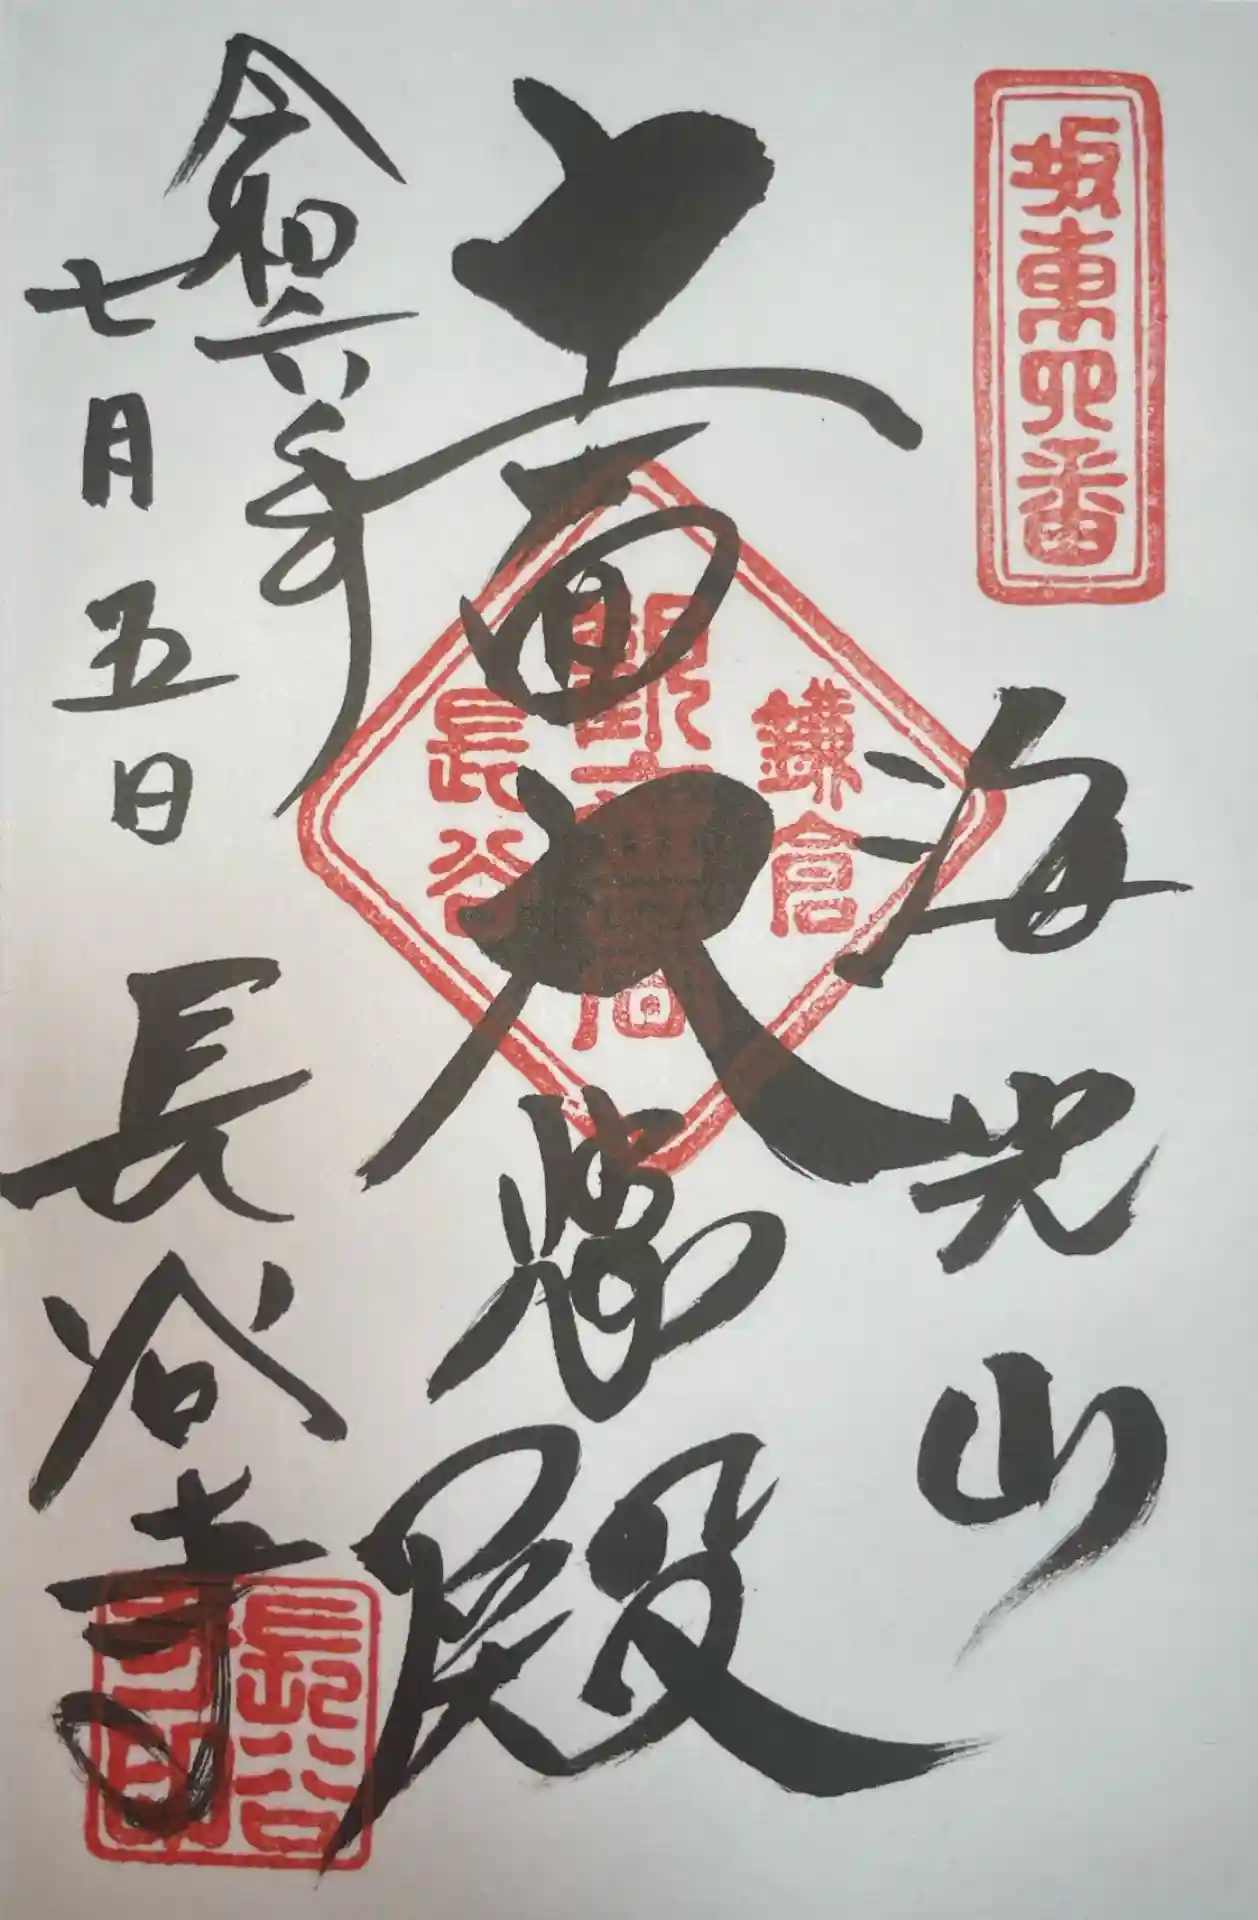 坂東四番
海光山
十一面大悲殿
鎌倉
長谷
令和六年
七月五日
長谷寺
長谷寺印